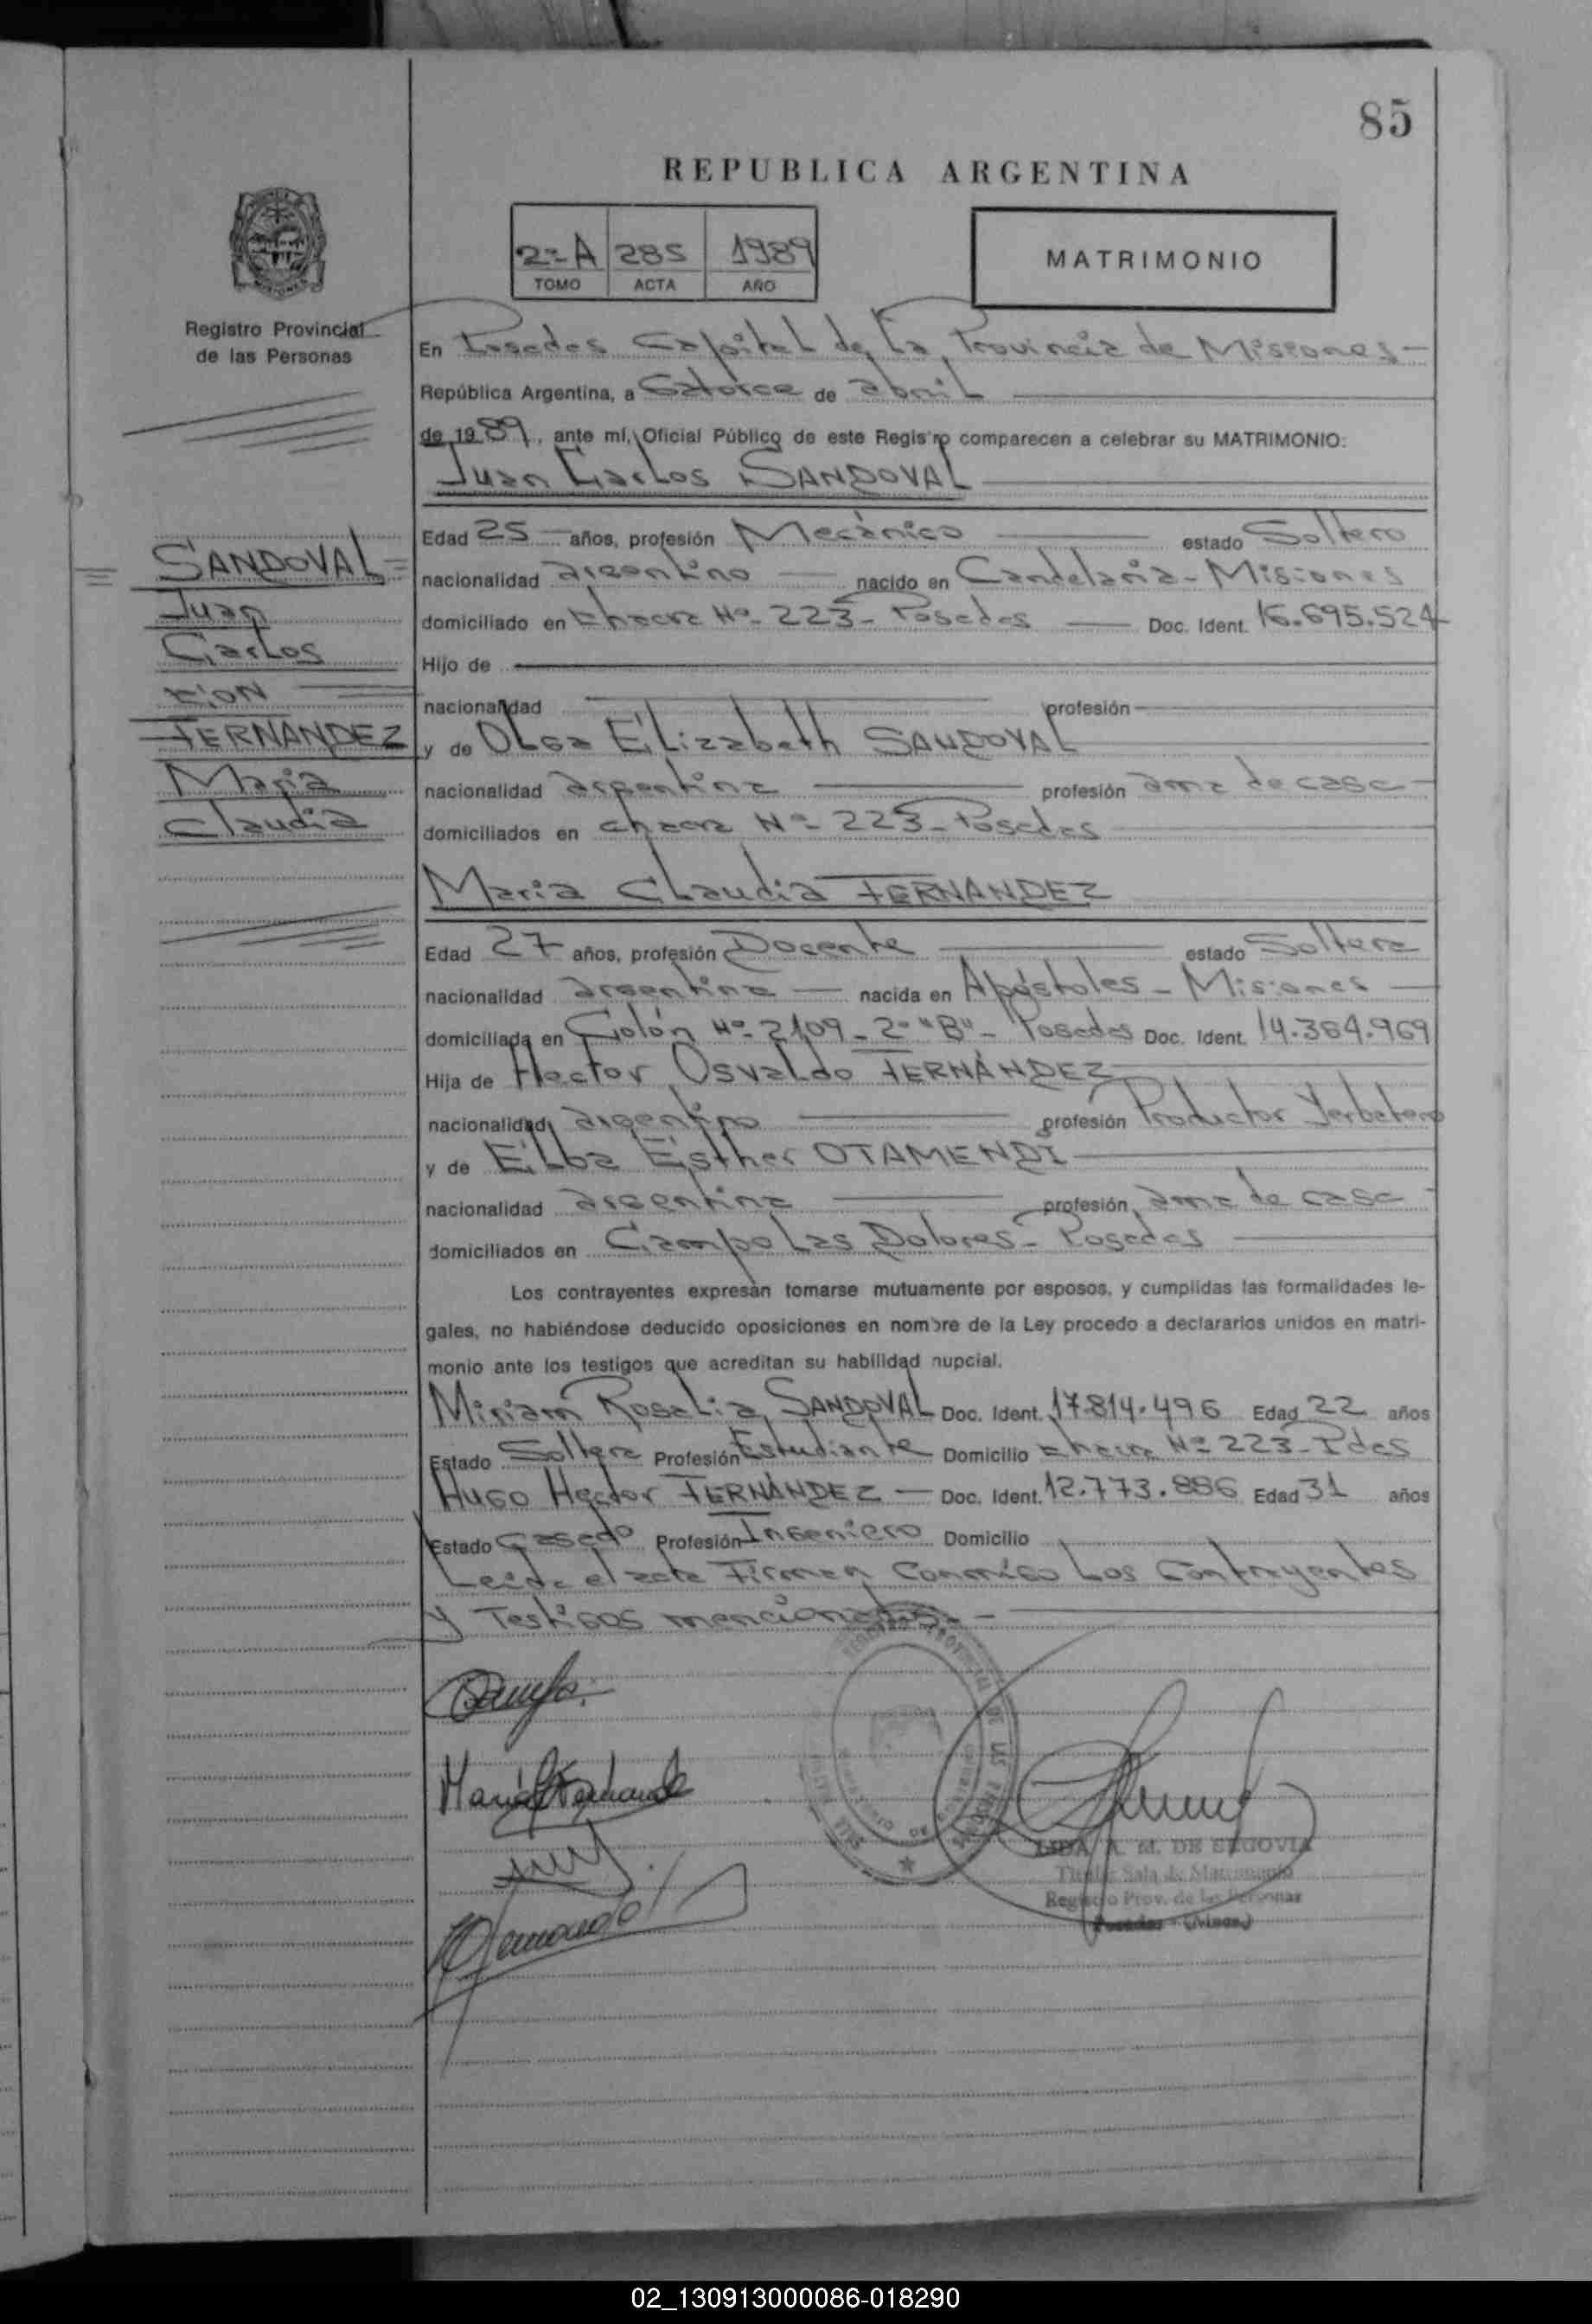 85
REPUBLICA ARGENTINA
2º A 285 1989
TOMO ACTA AÑO
MATRIMONIO
Registro Provincial
de las Personas
En Posadas Capital de la Provincia de Misiones
República Argentina, a Catorce de abril
de 1989, ante mí, Oficial Público de este Registro comparecen a celebrar su MATRIMONIO:
Juan Carlos SANDOVAL
Edad 25 años, profesión Mecánico estado Soltero
nacionalidad argentino nacido en Candelaria - Misiones
domiciliado en chacra Nº 223 - Posadas Doc. Ident. 16.695.524
Hijo de
nacionalidad profesión
y de Olga Elizabeth SANDOVAL
nacionalidad argentina profesión ama de casa
domiciliados en chacra Nº 223 - Posadas
SANDOVAL
Juan
Carlos
con
FERNANDEZ
Maria
Claudia
Maria Claudia FERNANDEZ
Edad 27 años, profesión Docente estado Soltera
nacionalidad argentina nacida en Apóstoles - Misiones
domiciliada en Colón Nº 2109 - 2º "B" - Posadas Doc. Ident. 14.364.969
Hija de Hector Osvaldo FERNÁNDEZ
nacionalidad argentino profesión Productor Yerbatero
y de Elba Esther OTAMENDI
nacionalidad argentina profesión ama de casa
domiciliados en Campo Las Dolores - Posadas
Los contrayentes expresan tomarse mutuamente por esposos, y cumplidas las formalidades le-
gales, no habiéndose deducido oposiciones en nombre de la Ley procedo a declararlos unidos en matri-
monio ante los testigos que acreditan su habilidad nupcial.
Miriam Rosalia SANDOVAL Doc. Ident. 17.814.496 Edad 22 años
Estado Soltera Profesión Estudiante Domicilio chacra Nº 223 - Pdas
Hugo Hector FERNÁNDEZ Doc. Ident. 12.773.886 Edad 31 años
Estado Casado Profesión Ingeniero Domicilio
Leida el acta Firman Conmigo Los Contrayentes
y Testigos mencionados
LIDA A. M. DE SEGOVIA
Titular Sala de Matrimonio
Registro Prov. de las Personas
Posadas - (Mnes.)
02_130913000086-018290